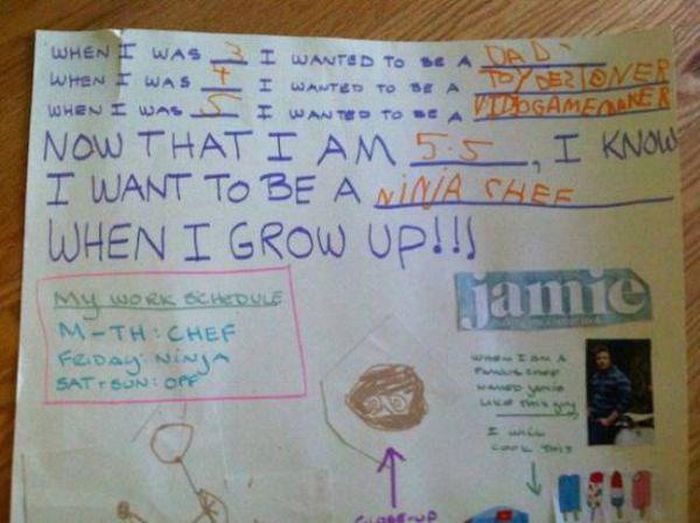 WHEN I WAS 3 I WANTED TO BE A DAD
WHEN I WAS 4 I WANTED TO BE A TOY DEZIONER
WHEN I WAS 5 I WANTED TO BE A VIDIOGAME MAKER
NOW THAT I AM 5.5, I KNOW
I WANT TO BE A NiNJA CHEF
WHEN I GROW UP!!!
MY WORK SCHEDULE
M-TH: CHEF
FRIDAY: NINJA
SAT + SUN: OFF
jamie
WHEN I AM A
FAMOUS CHEF
NAMED JAMIE
LIKE THIS GUY
I WILL
COOK THIS
CLOSE-UP